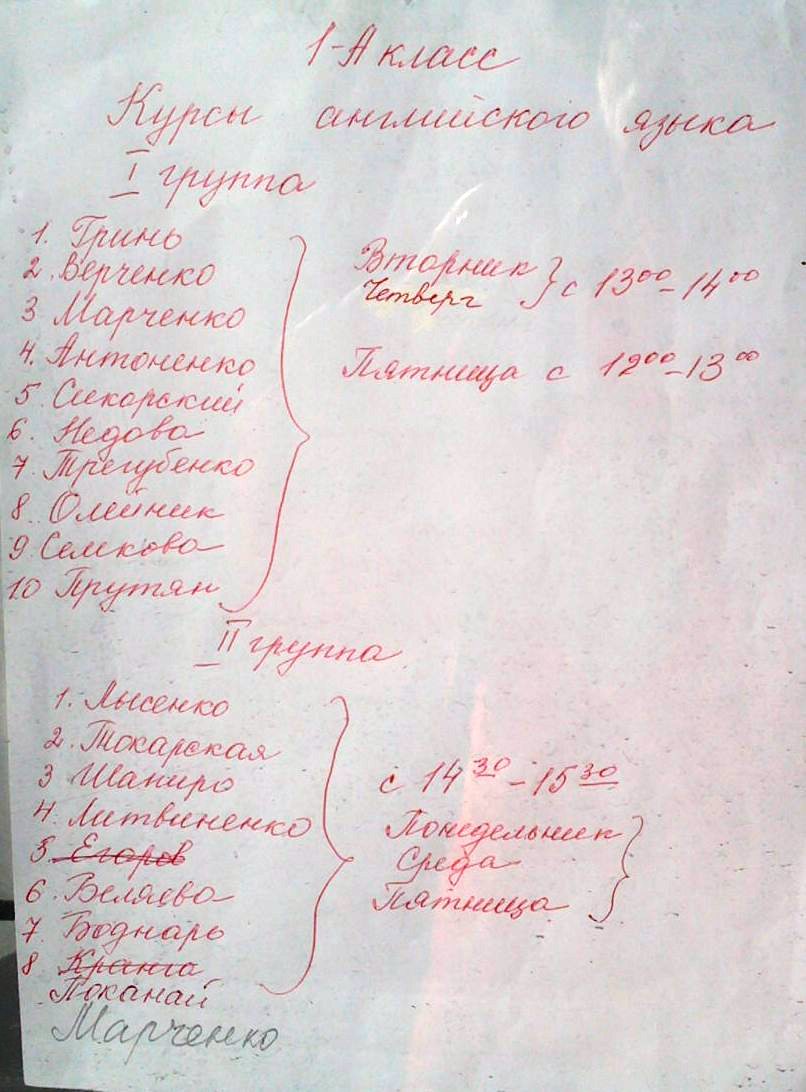 1-А класс
Курсы английского языка
I группа
1. Гринь
2. Верченко
3 Марченко
4. Антоненко
5. Сикорский
6. Недова
7 Трегубенко
8. Олейник
9 Семкова
10 Прутян
Вторник
Четверг
с 13⁰⁰-14⁰⁰
Пятница с 12⁰⁰-13⁰⁰
II группа
1. Лысенко
2. Токарская
3 Шапиро
4. Литвиненко
5 Егоров
6. Беляева
7. Боднарь
8
Поканай
Марченко
с 14³⁰-15³⁰
Понедельник
Среда
Пятница